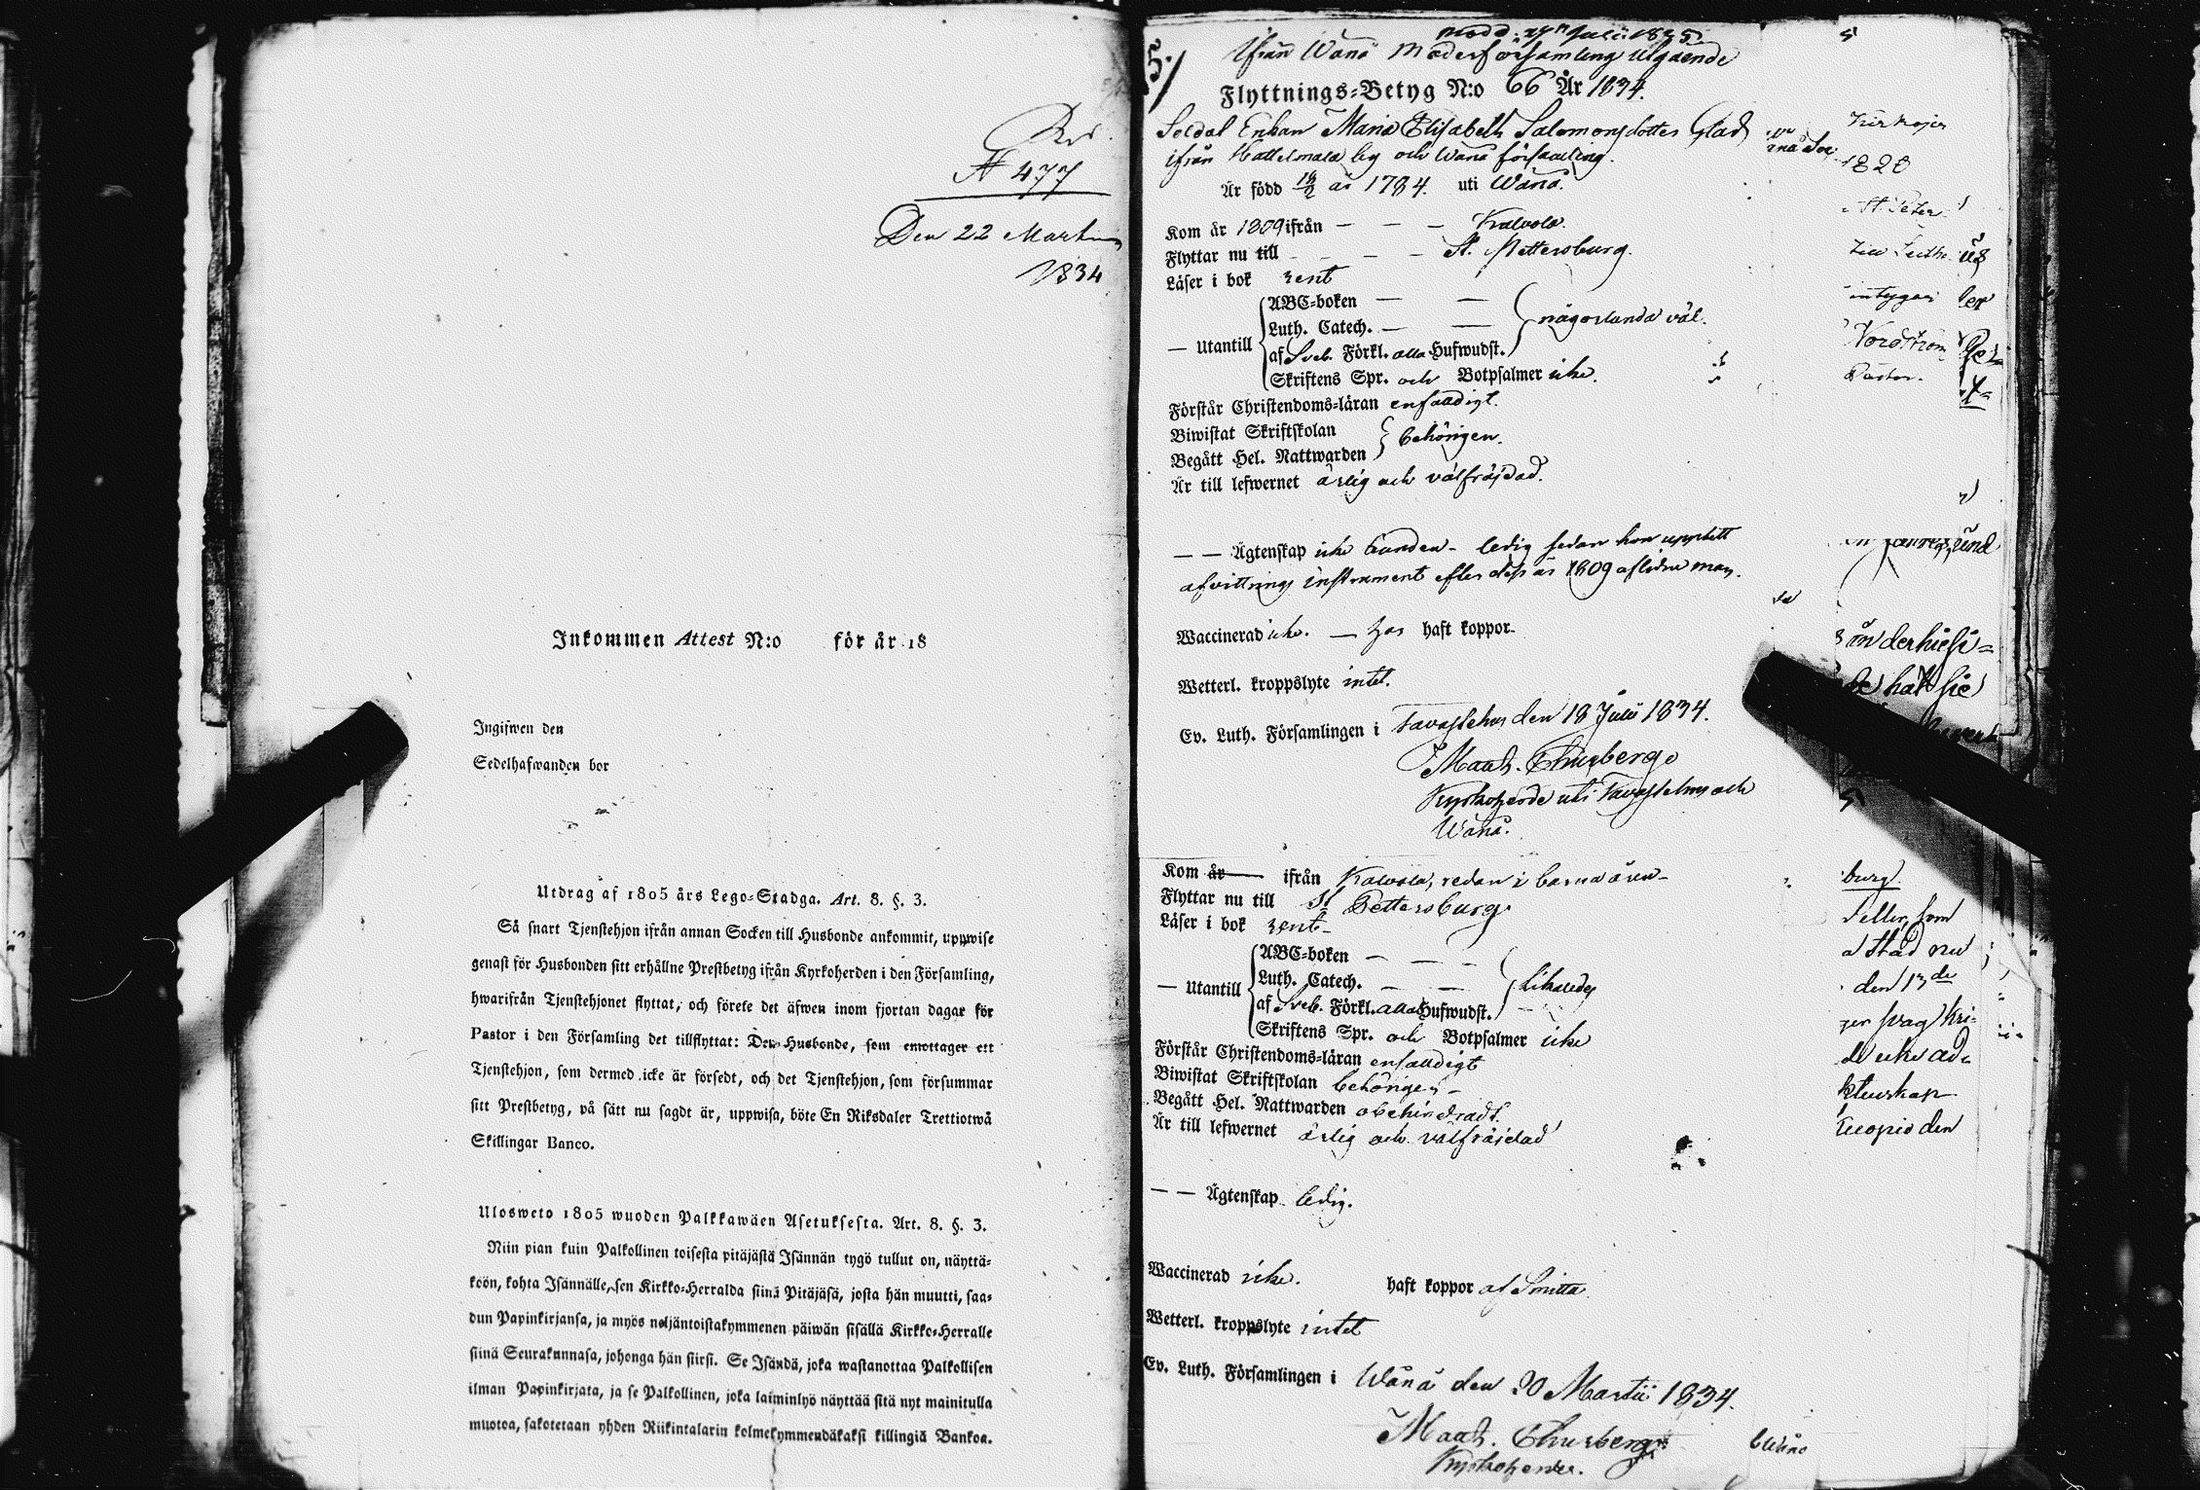 N 477
Den 22 Martii
1834
Inkommen Attest N:o för år 18
Ingifwen den
Sedelhafwanden bor
Utdrag af 1805 års Lego-Stadga. Art. 8. §. 3.
Så snart Tjenstehjon ifrån annan Socken till Husbonde ankommit, uppwise
genast för Husbonden sitt erhållne Prestbetyg ifrån Kyrkoherden i den Församling,
hwarifrån Tjenstehjonet flyttat, och förete det äfwen inom fjorton dagar för
Pastor i den Församling det tillflyttat: Den Husbonde, som emottager ett
Tjenstehjon, som dermed icke är försedt, och det Tjenstehjon, som försummar
sitt Prestbetyg, på sätt nu sagdt är, uppwisa, böte En Riksdaler Trettiotwå
Skillingar Banco.
Ulosweto 1805 wuoden Palkkawäen Asetuksesta. Art. 8. §. 3.
Niin pian kuin Palkollinen toisesta pitäjästä Isännän tygö tullut on, näyttä-
köön, kohta Isännälle, sen Kirkko-Herralda siinä Pitäjäsä, josta hän muutti, saa-
dun Papinkirjansa, ja myös neljäntoistakymmenen päiwän sisällä Kirkko-Herralle
siinä Seurakunnasa, johonga hän siirsi. Se Isändä, joka wastanottaa Palkollisen
ilman Papinkirjata, ja se Palkollinen, joka laiminlyö näyttää sitä nyt mainitulla
muotoa, sakotetaan yhden Riikintalarin kolmekymmendäkaksi killingiä Bankoa.
5.
Ifrån Wånå Moderförsamling utgående
Flyttnings-Betyg N:o 66 År 1834.
Soldat Enkan Maria Elisabeth Salomonsdotter Glad
ifrån Hattelmala by och Wånå församling.
Är född 18/2 år 1784. uti Wånå.
Kom år 1809 ifrån — — — Kalvola.
Flyttar nu till — — — — St. Pettersburg.
Läser i bok rent
ABC-boken — —
Luth. Catech. — — någorlunda väl.
— Utantill
af Sveb. Förkl. alla Hufwudst.
Skriftens Spr. och Botpsalmer icke.
Förstår Christendoms-läran enfaldigt.
Biwistat Skriftskolan
behörigen.
Begått Hel. Nattwarden
Är till lefwernet ärlig och välfräjdad.
— — Ägtenskap icke bunden - ledig sedan hon upptett
afvittrings instrument efter dess år 1809 aflidne man.
Waccinerad icke. — har haft koppor.
Wetterl. kroppslyte intet.
Ev. Luth. Församlingen i Tavastehus den 18 Julii 1834.
Math. Churberg
Kyrkoherde uti Tavastehus och
Wånå.
Kom år ifrån Kalvola, redan i barna åren -
Flyttar nu till St Pettersburg.
Läser i bok rent -
ABC-boken — — —
Luth. Catech. — — likaledes
— Utantill
af Sveb. Förkl. alla Hufwudst.
Skriftens Spr. och Botpsalmer icke
Förstår Christendoms-läran enfaldigt
Biwistat Skriftskolan behörigen -
Begått Hel. Nattwarden obehindradt.
Är till lefwernet ärlig och välfräjdad
— — Ägtenskap ledig.
Waccinerad icke. haft koppor af Smitta
Wetterl. kroppslyte intet
Ev. Luth. Församlingen i Wånå den 20 Martii 1834.
Math. Churberg
Kyrkoherde.
1820
St. Peter
intygar
Nordström
Pastor.
burg.
den 13de
Kuopio den